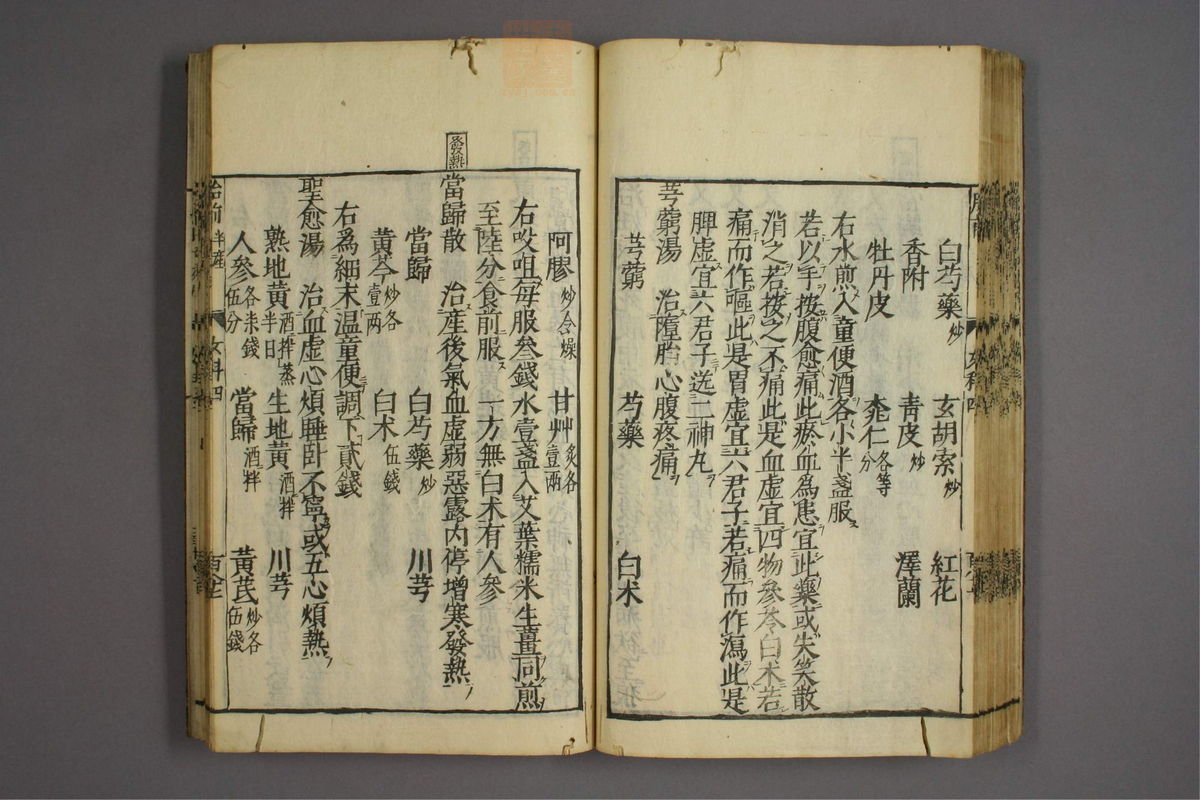 白芍藥炒 玄胡索炒 紅花
香附 青皮炒 澤蘭
牡丹皮 桃仁各等分
右水煎入童便酒各小半盞服
若以手按腹愈痛此瘀血為患宜此藥或失笑散
消之若按之不痛此是血虚宜四物參苓白术若
痛而作嘔此是胃虚宜六君子若痛而作瀉此是
脾虚宜六君子送二神丸
芎藭湯 治墮胎心腹疼痛
芎藭 芍藥 白术
阿膠炒令燥 甘艸炙各壹兩
右㕮咀每服叄錢水壹盞入艾葉糯米生薑同煎
至陸分食前服 一方無白术有人參
發熱
當歸散 治產後氣血虚弱惡露内停增寒發熱
當歸 白芍藥炒 川芎
黃芩炒各壹兩 白术伍錢
右為細末温童便調下貳錢
聖愈湯 治血虚心煩睡卧不寧或五心煩熱
熟地黃酒拌蒸半日 生地黃酒拌 川芎
人參各柒錢伍分 當歸酒拌 黃芪炒各伍錢
胎前 半產 女科四